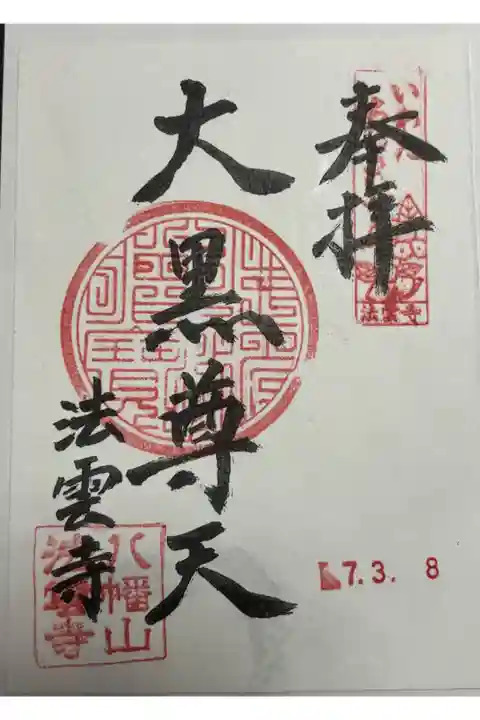 奉拝
大黒尊天
法雲寺
八幡山
法雲寺
法雲寺
7.3.8